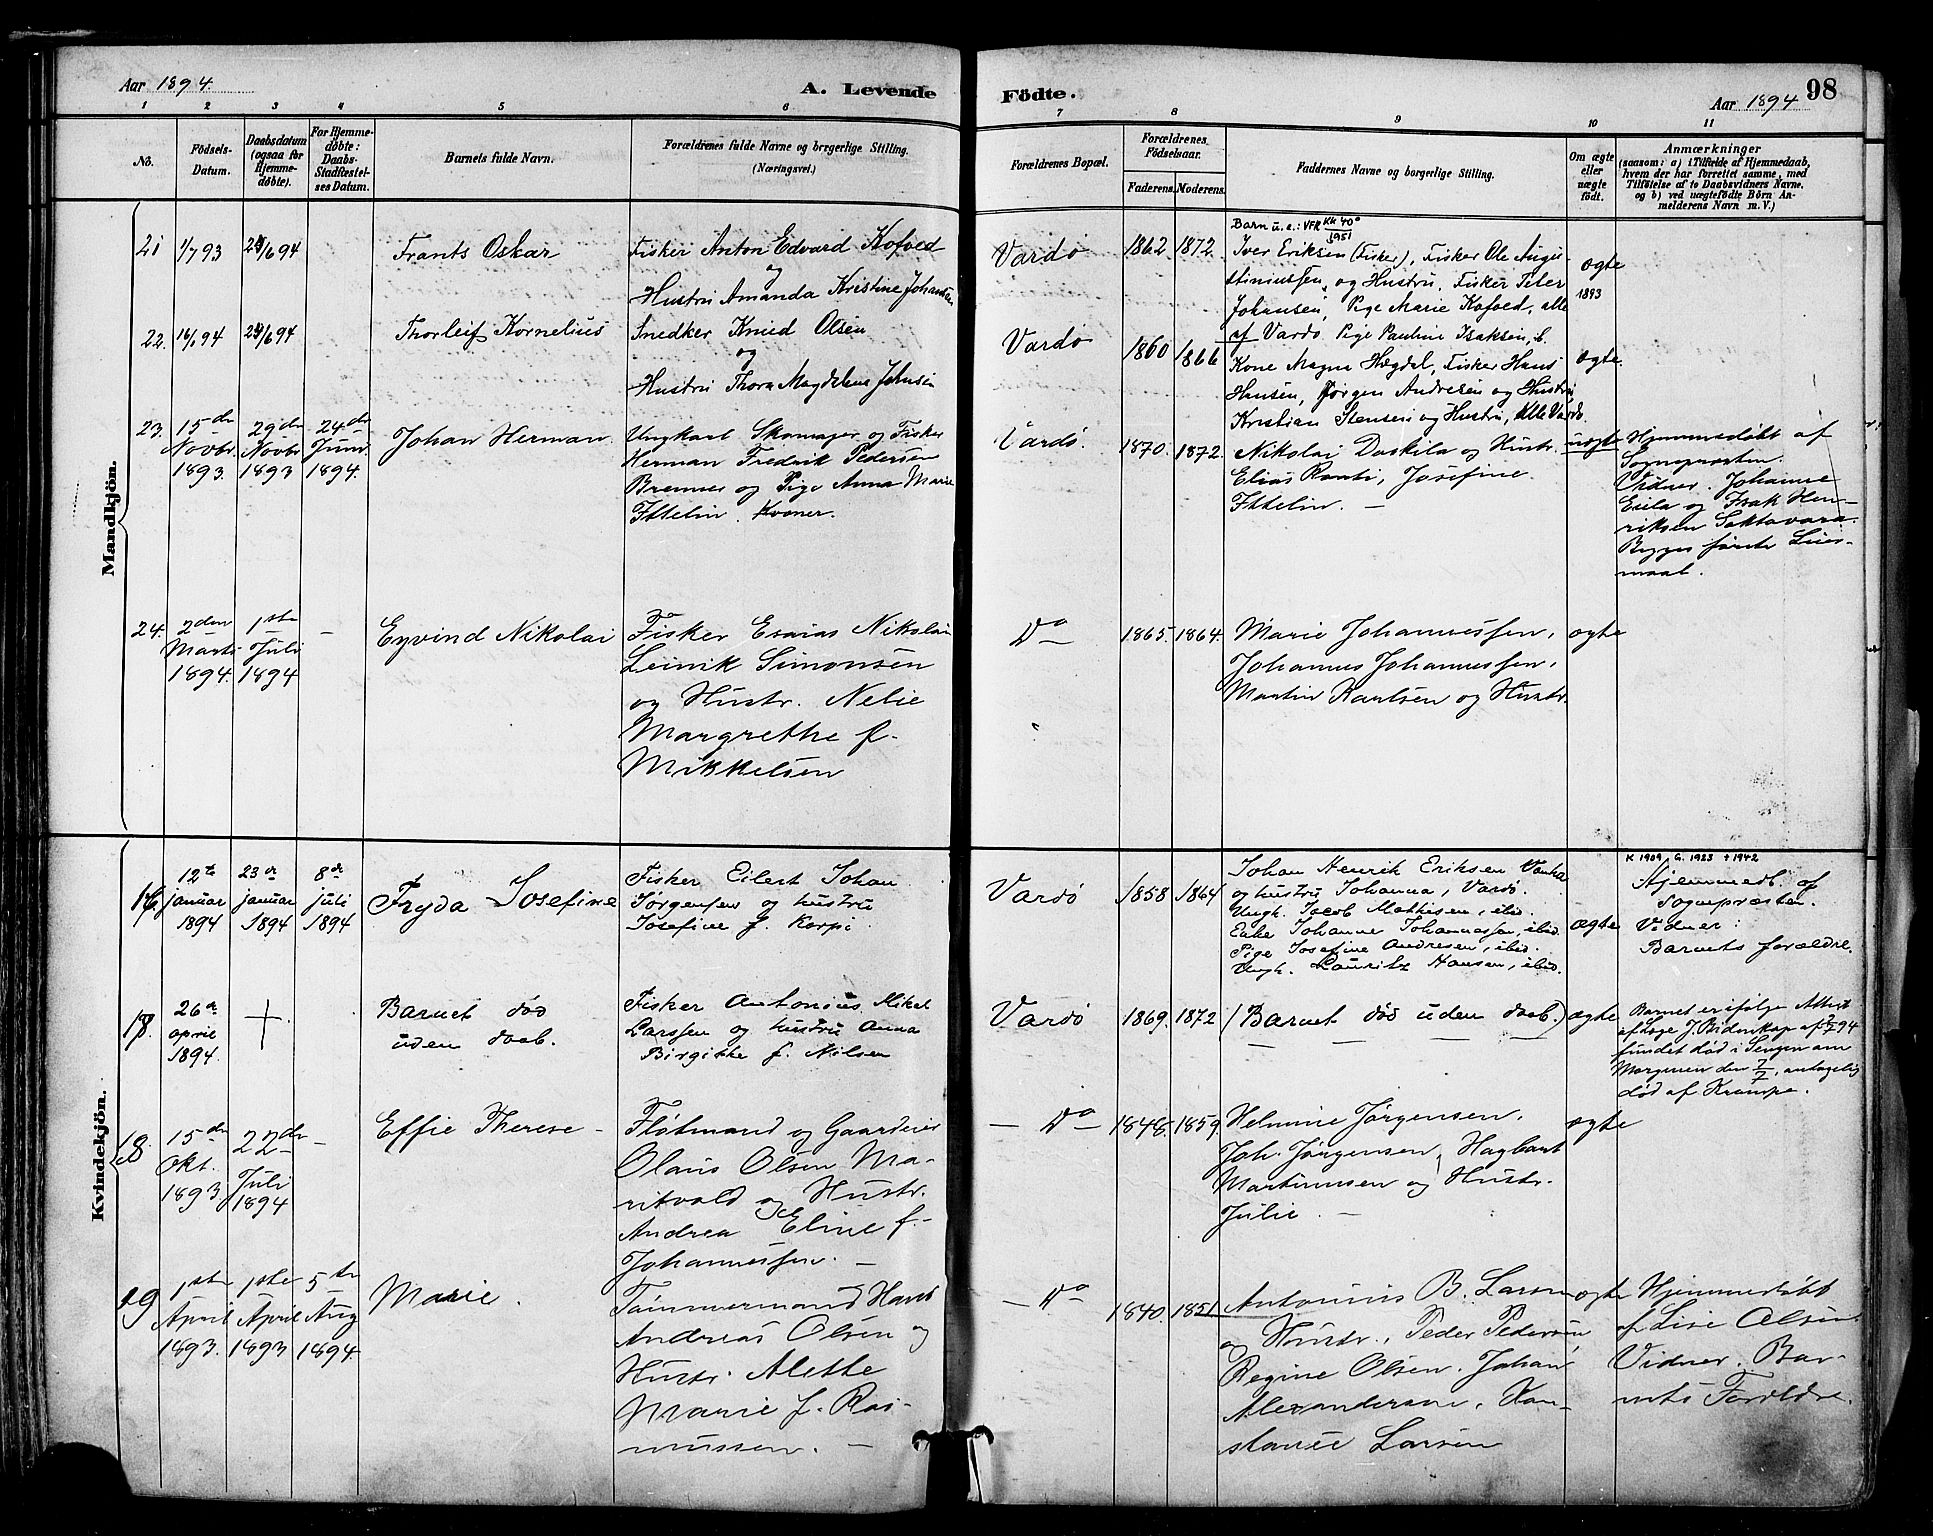 Aar 1894.
A. Levende Födte.
Aar 1894
98
1 2 3 4 5 6 7 8 9 10 11
No.
Födsels-
Datum.
Daabsdatum
(ogsaa for
Hjemme-
döbte).
For Hjemme-
döbte:
Daabs-
Stadfæstel-
ses Datum.
Barnets fulde Navn.
Forældrenes fulde Navne og borgerlige Stilling.
(Næringsvei.)
Forældrenes Bopæl.
Forældrenes
Födselsaar.
Faderens. Moderens.
Faddernes Navne og borgerlige Stilling.
Om ægte
eller
uægte
født.
Anmærkninger
(saasom: a) i Tilfælde af Hjemmedaab,
hvem der har forrettet samme, med
Tilföielse af to Daabsvidners Navne,
og b) ved uægtefödte Börn An-
melderens Navn m. V.)
Mandkjön.
21 1/7 93 24/6 94
Frants Oskar
Fisker Anton Edvard Kofoed
og
Hustru Amanda Kristine Johansen
Vardø 1862 1872
Barn u.e.: VFR KK 40°
1951
Iver Eriksen (Fisker), Fisker Ole Augu-
stiniussen, og Hustru, Fisker Peter
Johansen, Pige Marie Kofoed, alle
af Vardø
ægte
1893
22. 16/1 94 24/6 94
Thorleif Kornelius
Snedker Knud Olsen
og
Hustru Thora Magdelena Johnsen
Vardø 1860 1866
Pige Pauline Isaksen,
Kone Magna Hegdal, Fisker Hans
Hansen, Jørgen Andresen og Hustru,
Kristian Stensen og Hustru, Alle Vardø.
ægte.
23. 15de
Novbr
1893.
29de
Novbr
1893
24de
Juni
1894.
Johan Herman.
Ungkarl Skomager og Fisker
Herman Fredrik Pedersen
Brenner og Pige Anna Marie
Ittelin. Kvæner.
Vardø. 1870. 1872.
Nikolai Daskila og Hustr.
Elias Ranti, Josefine
Ittelin. —
uægte
Hjemmedøbt af
Sognepræsten.
Vidner. Johanne
Eiela og Isak Hen-
riksen Saktavara.
Begges første Leier-
maal.
24. 2den
Marts
1894.
1ste
Juli
1894
—
Eyvind Nikolai
Fisker Esaias Nikolai
Leinik Simonsen
og Hustr. Nelie
Margrethe f.
Mikkelsen
Do 1865. 1864.
Marie Johannessen,
Johannes Johannessen,
Martin Karlsen og Hustr.
ægte
Kvindekjön.
16 12te
januar
1894
23de
januar
1894
8de
juli
1894
Fryda Josefine
Fisker Eilert Johan
Jørgensen og hustru
Josefine f. Korpi.
Vardø 1858 1864
Johan Henrik Eriksen Vanha
og hustru Johanna, Vardø.
Ungk. Jacob Mathisen, ibid.
Enke Johanne Johannessen, ibid.
Pige Josefine Andresen, ibid.
Ungk. Lauritz Hansen, ibid.
ægte
K 1909 G. 1923 + 1942
Hjemmedb. af
Sognepræsten.
Vidner:
Barnets forældre.
17. 26de
april
1894.
+.
Barnet død
uden daab.
Fisker Antonius Mikal
Larssen og hustru Anna
Birgitte f. Nilsen
Vardø 1869. 1872
(Barnet død uden daab.)
— — — —
ægte
Barnet er ifølge Attest
af Læge J. Bidenkap af 7/7 94
fundet død i Sengen om
Morgenen den 7/7, antagelig
død af Krampe.
18. 15de
Okt.
1893.
22de
Juli
1894
—
Effie Therese —
Fløtmand og Gaardeier
Olaus Olsen Ma-
ritvold og Hustr.
Andrea Eline f.
Johannessen. —
— Do — 1848. 1859.
Helmine Jørgensen,
Joh. Jørgensen, Hagbart
Martinussen og Hustr.
Julie. —
ægte
19 1ste
April
1893.
1ste
April
1893
5te
Aug
1894.
Marie.
Tømmermand Hans
Andreas Olsen og
Hustr. Alette
Marie f. Ras-
mussen. —
— Do — 1840. 1851.
Antonius B. Larsen
og Hustr., Peder Pedersen
Regine Olsen. Johan
Alexandersen, Kon-
stanse Larsen
ægte
Hjemmedøbt
af Lise Olsen.
Vidner. Bar-
nets Forældre.